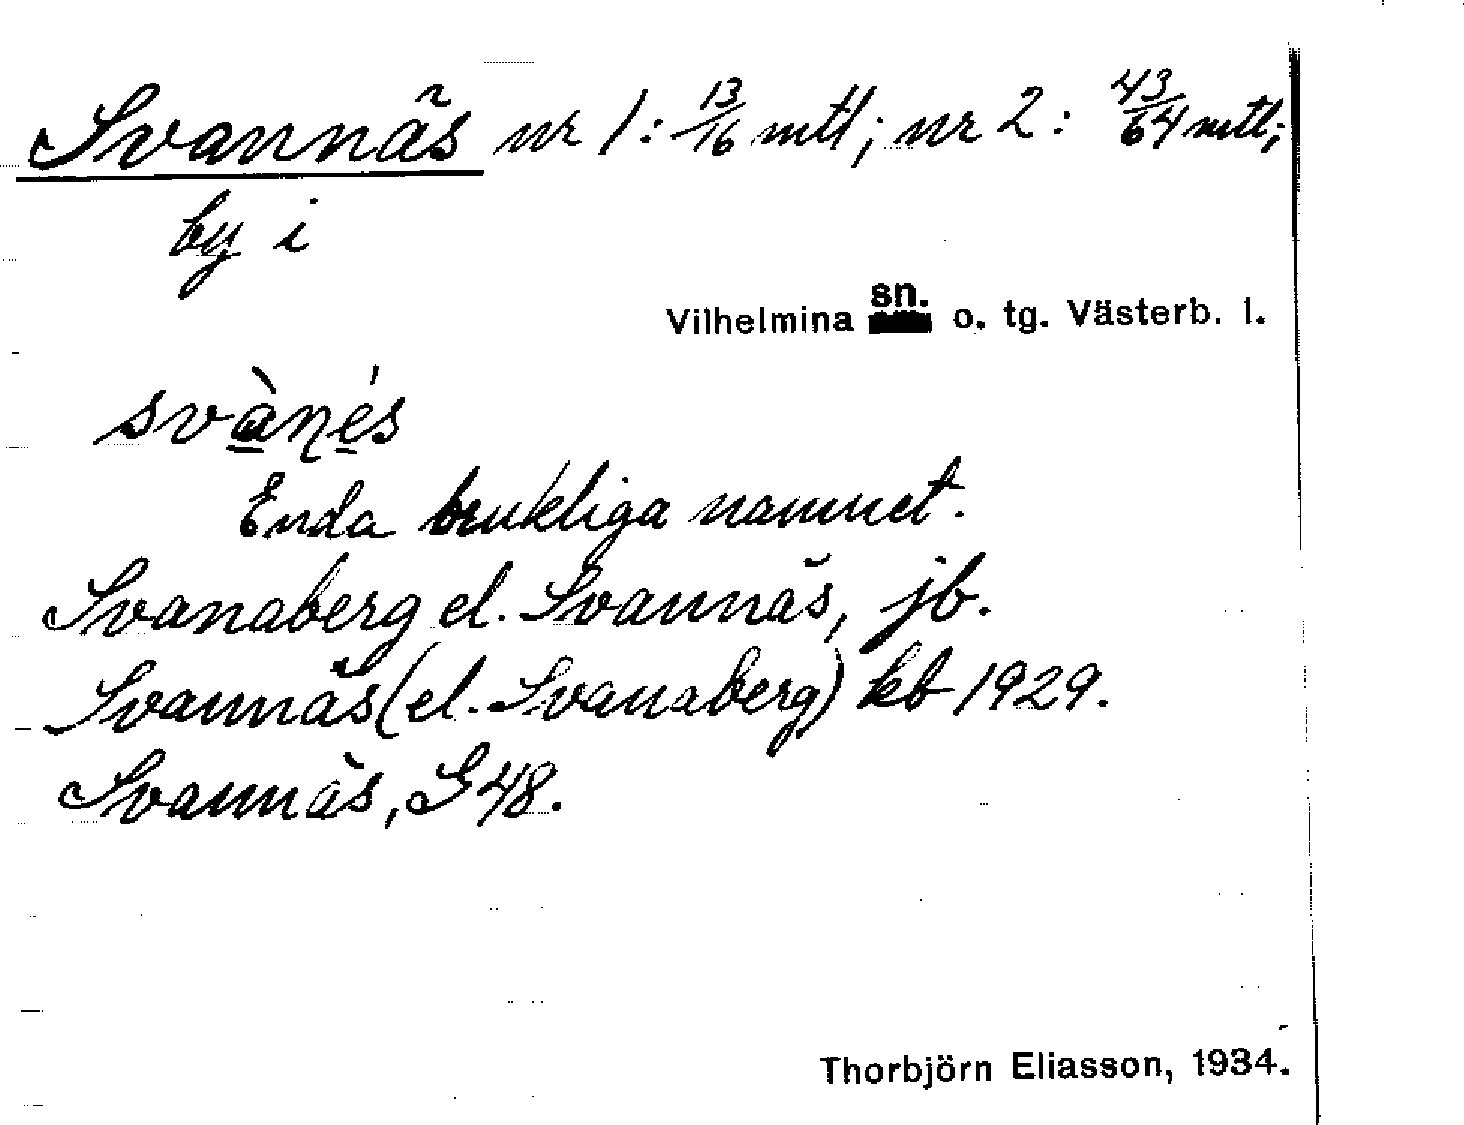 Svannäs nr 1: 13/16 mtl; nr 2: 43/64 mtl;
by i
Vilhelmina sn. o. tg. Västerb. l.
svànés
Enda brukliga namnet.
Svanaberg el. Svannäs, jb.
Svannäs (el. Svanaberg) kb 1929.
Svannäs, G 48.
Thorbjörn Eliasson, 1934.